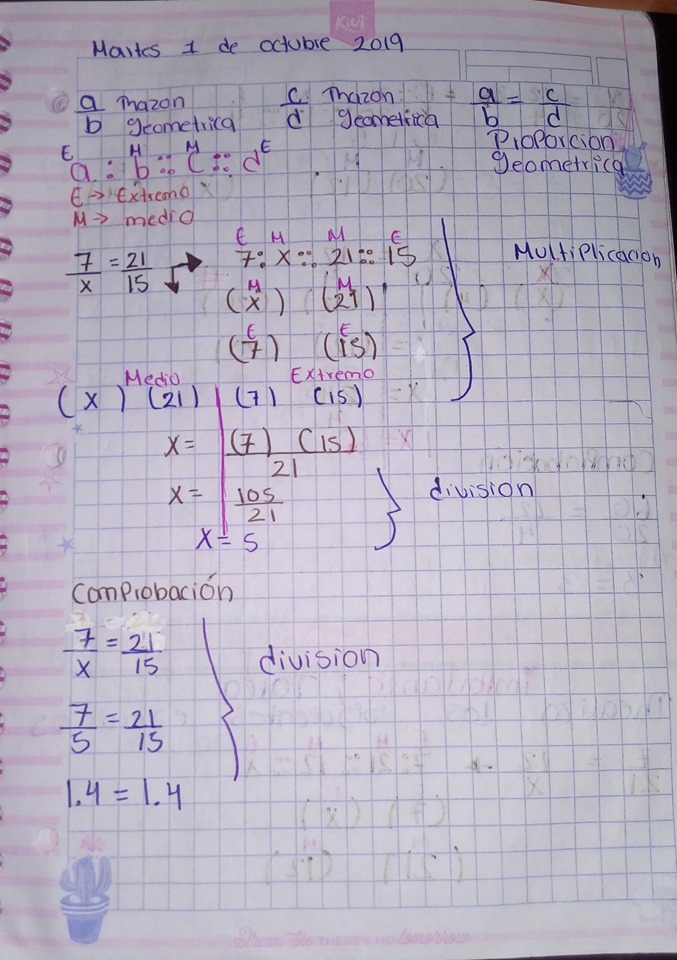 KIUT
Martes 1 de octubre 2019
a/b razon geometrica   c/d razon geometrica   a/b = c/d
Proporcion
geometrica
E M M E
a : b :: c :: d
E → Extremo
M → medio
7/x = 21/15   E M M E   Multiplicacion
7: x :: 21 :: 15
M M
(x) (21)
E E
(7) (15)
Medio Extremo
(x) (21) (7) (15)
x = (7) (15)/21
x = 105/21   division
x = 5
Comprobación
7/x = 21/15   division
7/5 = 21/15
1.4 = 1.4